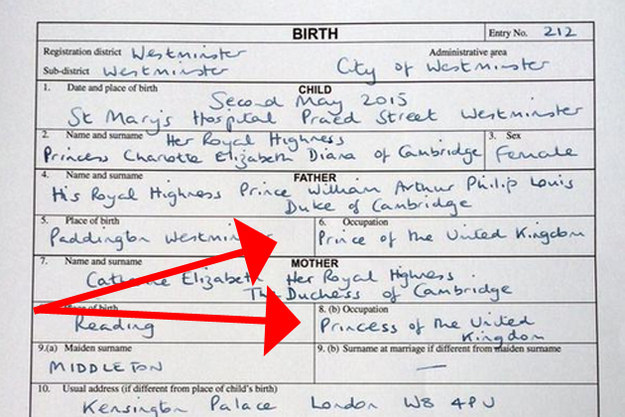 BIRTH
Entry No. 212
Registration district Westminster
Administrative area
Sub-district Westminster
City of Westminster
1. Date and place of birth
CHILD
Second May 2015
St Mary's Hospital Praed Street Westminster
2. Name and surname Her Royal Highness
3. Sex
Princess Charlotte Elizabeth Diana of Cambridge
Female
4. Name and surname
FATHER
His Royal Highness Prince William Arthur Philip Louis
Duke of Cambridge
5. Place of birth
6. Occupation
Paddington Westminster
Prince of the United Kingdom
7. Name and surname
MOTHER
Catherine Elizabeth Her Royal Highness
The Duchess of Cambridge
of birth
8. (b) Occupation
Reading
Princess of the United
Kingdom
9.(a) Maiden surname
9. (b) Surname at marriage if different from maiden surname
MIDDLETON
—
10. Usual address (if different from place of child's birth)
Kensington Palace London W8 4PU